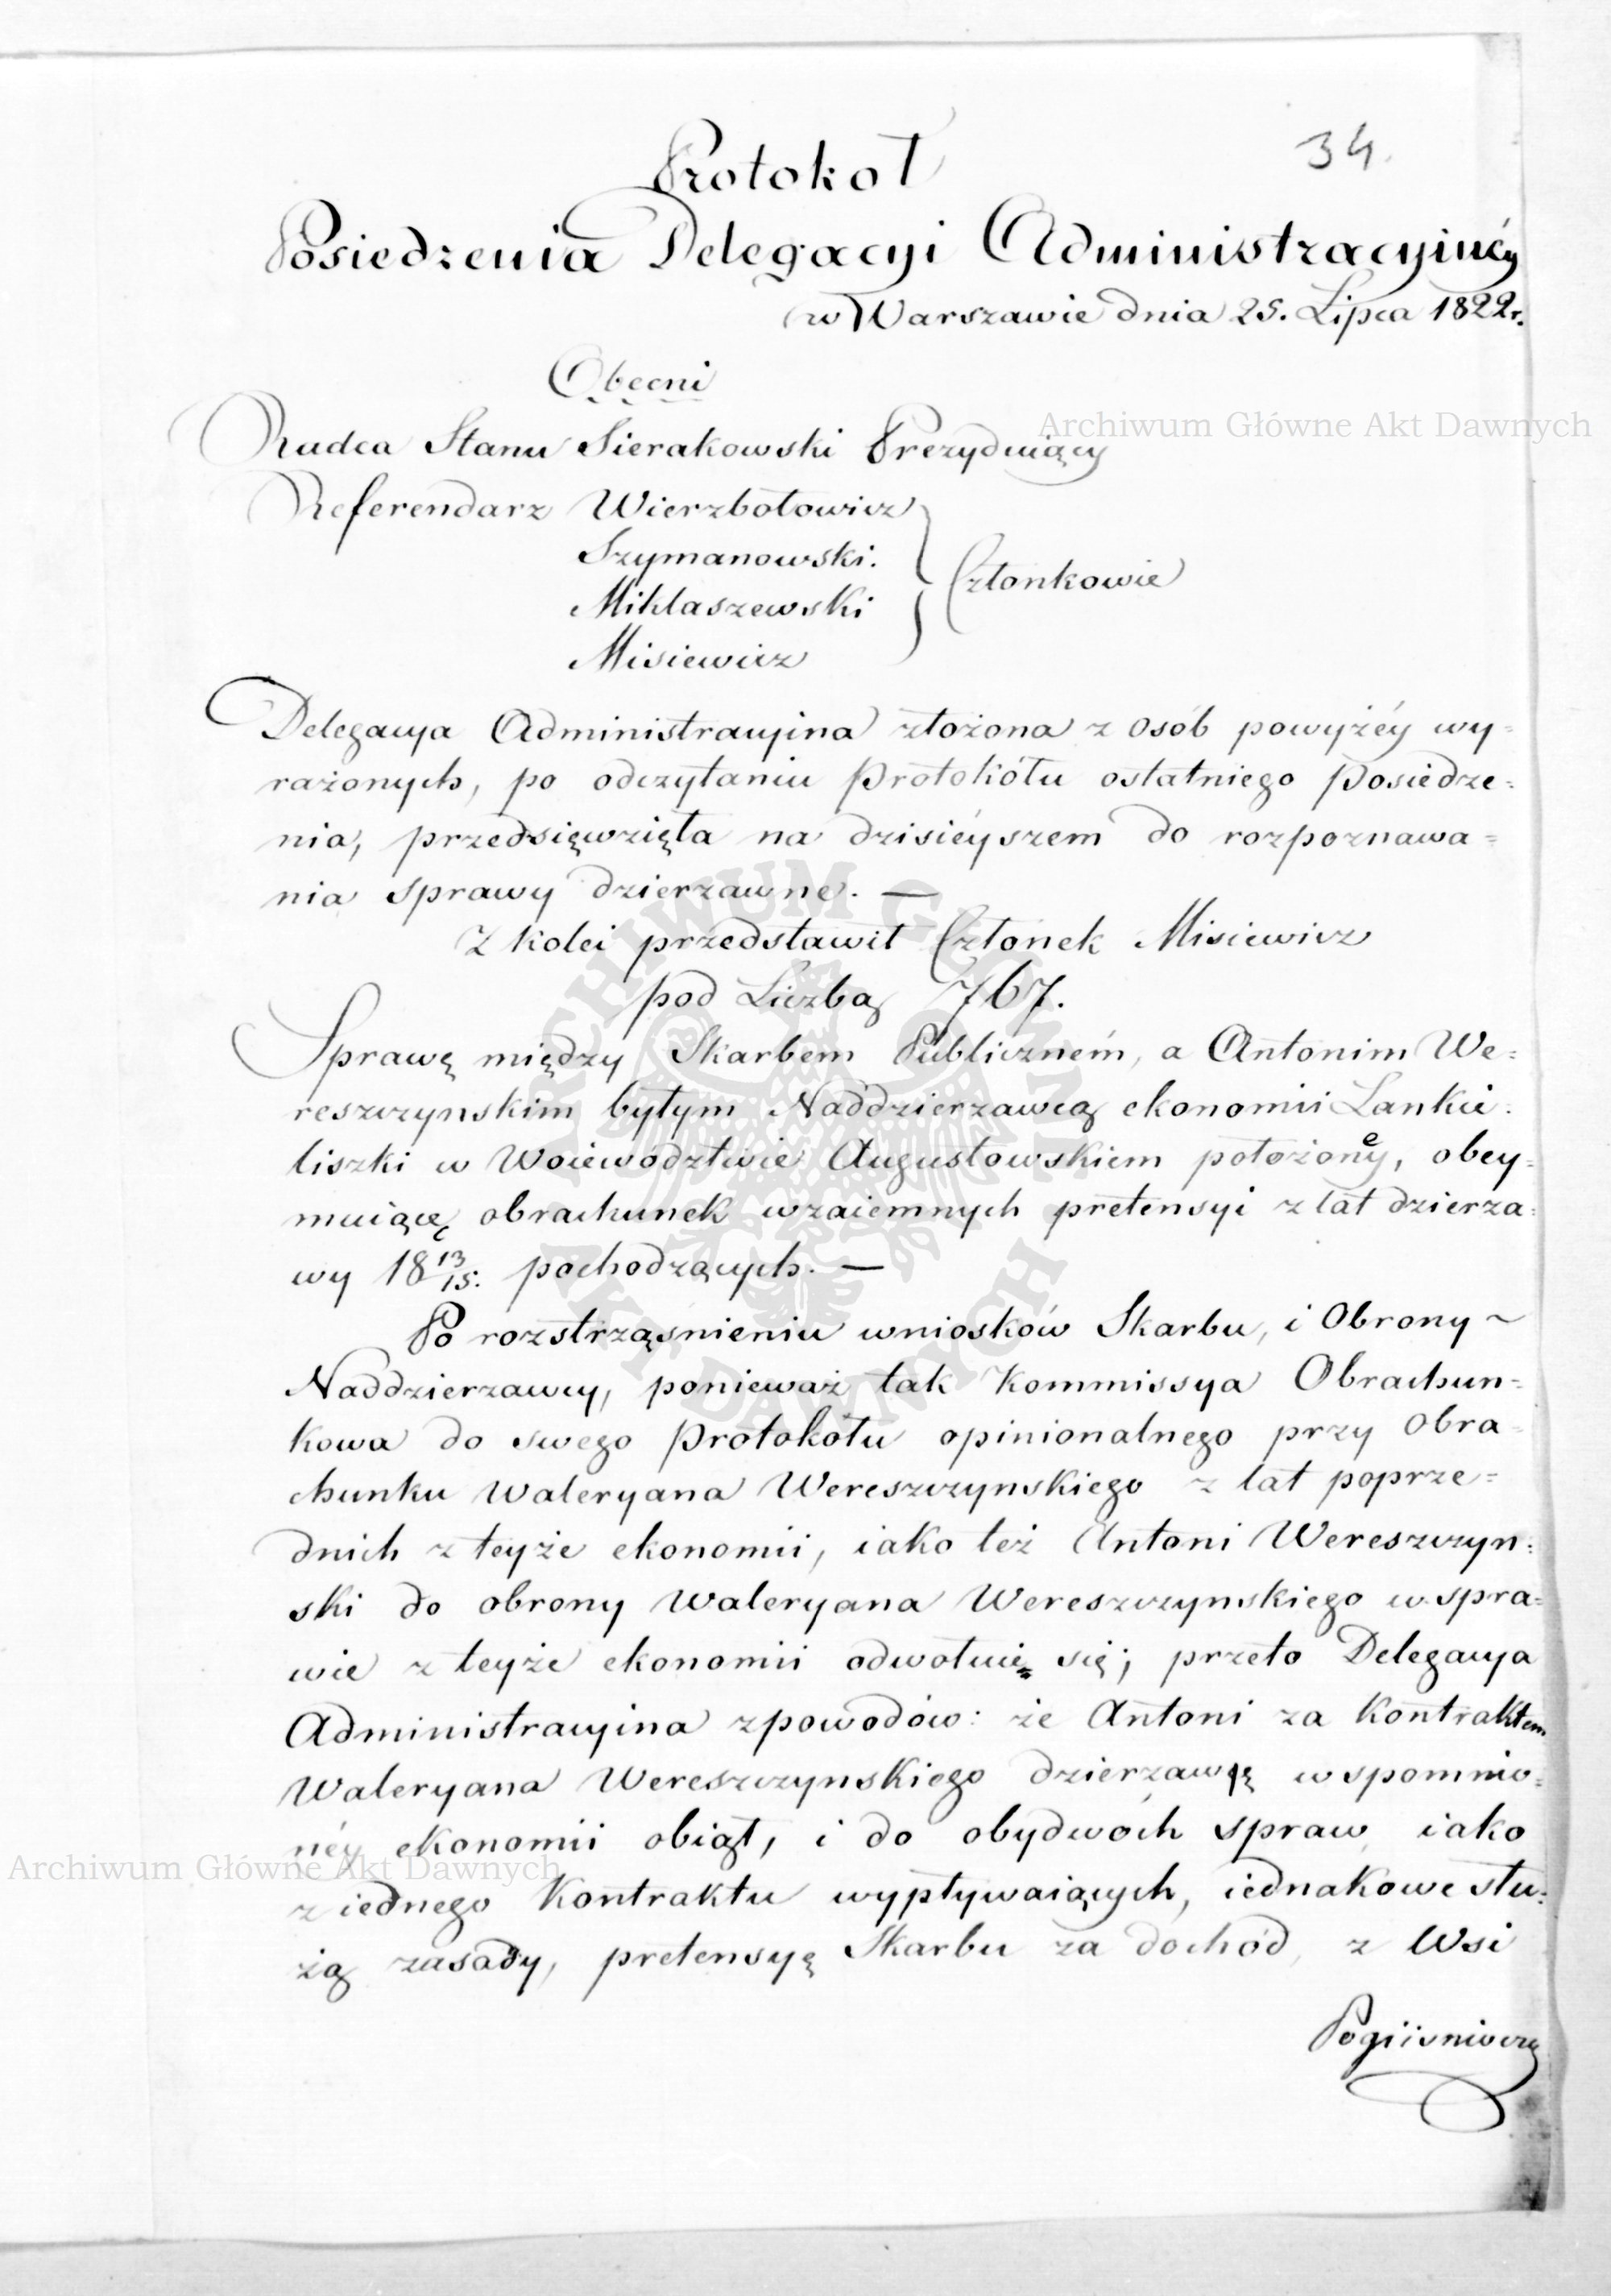 34.
Protokoł
Posiedzenia Delegacyi Administracyinéy
w Warszawie dnia 25. Lipca 1822r.
Obecni
Radca Stanu Sierakowski Prezyduiący
Archiwum Główne Akt Dawnych
Referendarz Wierzbołowicz
Szymanowski.
Członkowie
Miklaszewski
Misiewicz
Delegacya Administracyina złożona z osób powyżéy wy=
rażonych, po odczytaniu Protokółu ostatniego Posiedze=
nia, przedsięwzięła na dzisiéyszem do rozpoznawa=
nia sprawy dzierzawne. —
Z kolei przedstawił Członek Misiewicz
pod Liczbą 767.
Sprawę między Skarbem Publiczném, a Antonim We=
reszczynskim byłym Naddzierzawcą ekonomii Lankie=
liszki w Woiewództwie Augustowskiem położoney, obey=
muiącę obrachunek wzaiemnych pretensyi z lat dzierza=
wy 18 13/15. pochodzących. —
Po rozstrząśnieniu wniosków Skarbu, i Obrony ~
Naddzierzawcy, ponieważ tak Kommissya Obrachun=
kowa do swego Protokółu opinionalnego przy Obra=
chunku Waleryana Wereszczynskiego z lat poprze=
dnich z teyże ekonomii, iako też Antoni Wereszczyn=
ski do obrony Waleryana Wereszczynskiego w spra=
wie z teyże ekonomii odwołuie się; przeto Delegacya
Administracyina z powodów: że Antoni za Kontraktem
Waleryana Wereszczynskiego dzierzawę wspomnio=
néy ekonomii obiął, i do obydwóch spraw, iako
Archiwum Główne Akt Dawnych
z iednego Kontraktu wypływaiących, iednakowe słu=
żą zasady, pretensyę Skarbu za dochód, z Wsi
ARCHIWUM GŁÓWNE AKT DAWNYCH